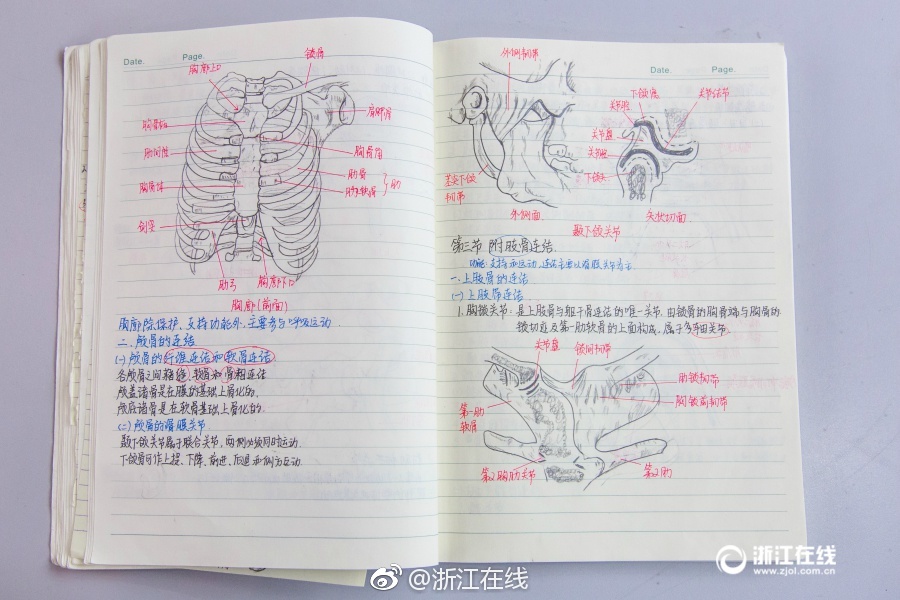 Date.
Page.
胸廓上口
锁骨
肩胛骨
胸骨柄
肋间隙
胸骨角
肋骨
肋软骨
肋
胸骨体
剑突
肋弓
胸廓下口
胸廓(前面)
胸廓除保护、支持功能外,主要参与呼吸运动.
二、颅骨的连结
(一)颅骨的纤维连结和软骨连结
各颅骨之间
软骨和骨相连结
颅盖诸骨是在膜的基础上骨化的.
颅底诸骨是在软骨基础上骨化的.
(二)颅骨的滑膜关节
颞下颌关节属于联合关节,两侧必须同时运动.
下颌骨可作上提、下降、前进、后退和侧方运动.
Date.
Page.
外侧韧带
下颌窝
关节结节
关节腔
关节盘
关节囊
下颌头
茎突下颌
韧带
外侧面
矢状切面
颞下颌关节
第三节 附肢骨连结
功能:支持和运动,连结主要以滑膜关节为主
一、上肢骨的连结
(一)上肢带连结
1.胸锁关节:是上肢骨与躯干骨连结的唯一关节.由锁骨的胸骨端与胸骨的
锁切迹及第一肋软骨的上面构成,属于多轴关节.
关节盘
锁间韧带
肋锁韧带
胸锁前韧带
第一肋
软骨
第2胸肋关节
第2肋
@浙江在线
浙江在线
www.zjol.com.cn